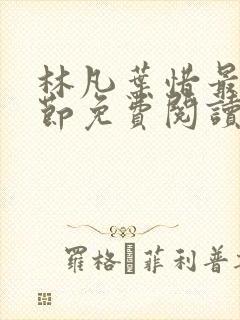 林凡葉惜最
節免費閱讀
羅格 菲利普